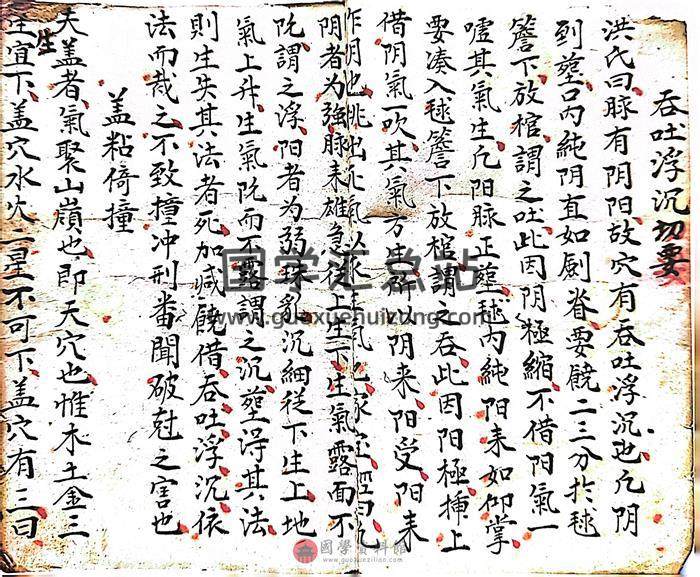 吞吐浮沉切要
洪氏曰脉有阴阳故穴有吞吐浮沉也凡阴
到塟口内純阴直如劍脊要饒二三分於毬
簷下放棺謂之吐此因阴極縮不借阳氣一
噓其氣生凡阳脉正塟毬内純阳来如仰掌
要凑入毬簷下放棺謂之吞此因阳極揷上
借阴氣一吹其氣方生所以阴来阳受阳来
阴者为强脉来雄急從上生下生氣露面不
阮謂之浮阳者为弱珠乱沉細從下生上地
氣上升生氣阮而不露謂之沉塟淂其法
則生失其法者死加减饒借吞吐浮沉依
法而裁之不致撞冲刑番聞破尅之害也
盖粘倚撞
夫盖者氣聚山嶺也即天穴也惟木土金三
星宜下盖穴水火二星不可下盖穴有三曰
生
国学汇总站
www.guoxuehuizong.com
國學資料館
www.guoxueziliao.com